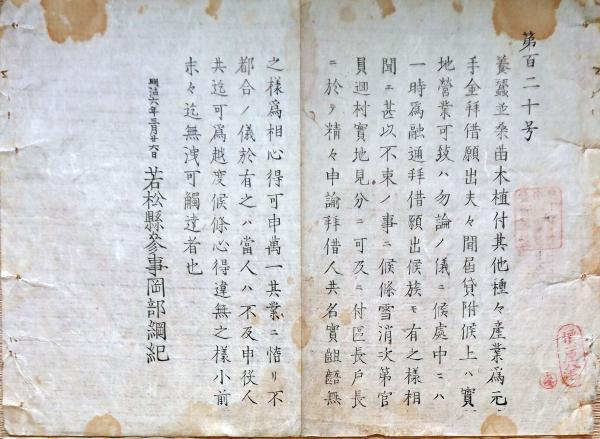 第百二十号
養蠶並桒苗木植付其他種々産業爲元
手金拜借願出夫々聞届貸附候上ハ實
地營業可致ハ勿論ノ儀ニ候處中ニハ
一時爲融通拜借願出候族モ有之様相
聞ニ甚以不束ノ事ニ候條雪消次第官
員廽村實地見分ニ可及ニ付區長戸長
ニ於テ精々申諭拜借人共名實齟齬無
之様爲相心得可申萬一其業ニ惰リ不
都合ノ儀於有之ハ當人ハ不及申從人
共迄可爲越度候條心得違無之様小前
末々迄無洩可觸達者也
明治六年三月廿六日
若松縣參事岡部綱紀